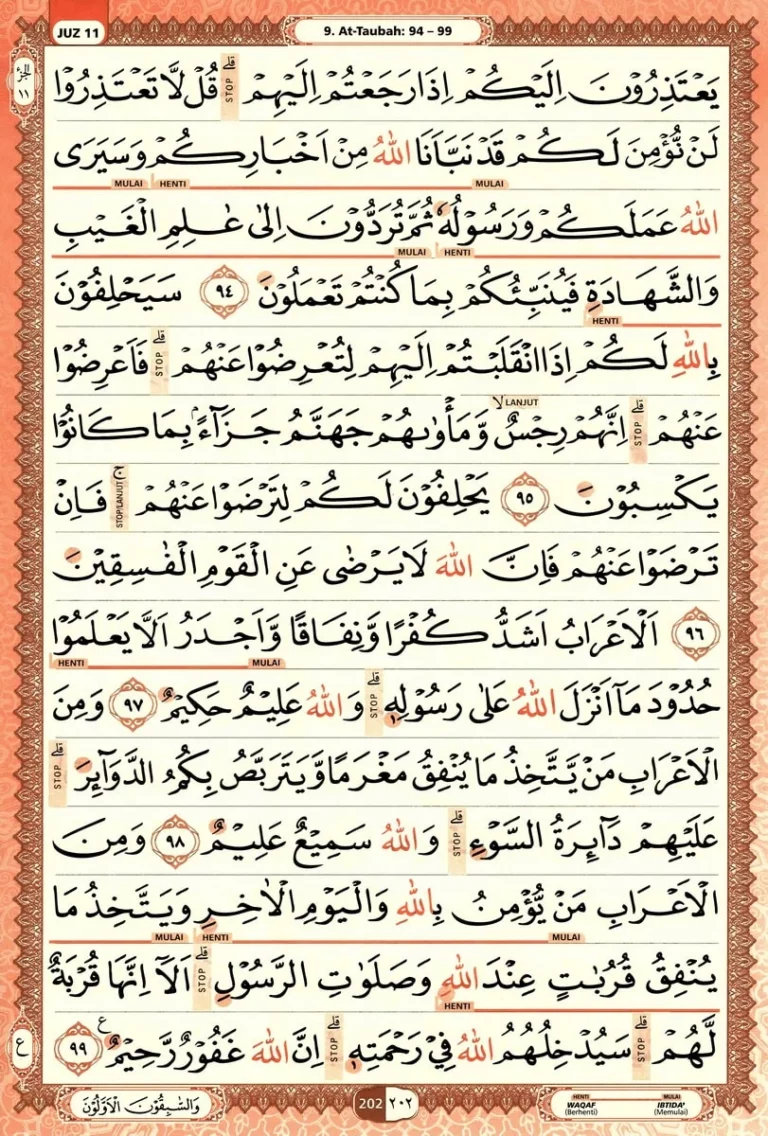 JUZ 11
9. At-Taubah: 94 – 99
الجزء ١١
يَعْتَذِرُوْنَ اِلَيْكُمْ اِذَا رَجَعْتُمْ اِلَيْهِمْ ۗ STOP قُلْ لَّا تَعْتَذِرُوْا
لَنْ نُّؤْمِنَ لَكُمْ قَدْ نَبَّاَنَا اللّٰهُ مِنْ اَخْبَارِكُمْ وَسَيَرَى
MULAI HENTI MULAI
اللّٰهُ عَمَلَكُمْ وَرَسُوْلُهٗ ثُمَّ تُرَدُّوْنَ اِلٰى عٰلِمِ الْغَيْبِ
HENTI MULAI
وَالشَّهَادَةِ فَيُنَبِّئُكُمْ بِمَا كُنْتُمْ تَعْمَلُوْنَ ٩٤ سَيَحْلِفُوْنَ
HENTI
بِاللّٰهِ لَكُمْ اِذَا انْقَلَبْتُمْ اِلَيْهِمْ لِتُعْرِضُوْا عَنْهُمْ ۗ STOP فَاَعْرِضُوْا
عَنْهُمْ ۗ STOP اِنَّهُمْ رِجْسٌ ۙ LANJUT وَّمَأْوٰىهُمْ جَهَنَّمُ جَزَاۤءً ۢبِمَا كَانُوْا
يَكْسِبُوْنَ ٩٥ يَحْلِفُوْنَ لَكُمْ لِتَرْضَوْا عَنْهُمْ ۚ STOP/LANJUT فَاِنْ
تَرْضَوْا عَنْهُمْ فَاِنَّ اللّٰهَ لَا يَرْضٰى عَنِ الْقَوْمِ الْفٰسِقِيْنَ
٩٦ اَلْاَعْرَابُ اَشَدُّ كُفْرًا وَّنِفَاقًا وَّاَجْدَرُ اَلَّا يَعْلَمُوْا
MULAI HENTI
حُدُوْدَ مَآ اَنْزَلَ اللّٰهُ عَلٰى رَسُوْلِهٖ ۗ STOP وَاللّٰهُ عَلِيْمٌ حَكِيْمٌ ٩٧ وَمِنَ
الْاَعْرَابِ مَنْ يَّتَّخِذُ مَا يُنْفِقُ مَغْرَمًا وَّيَتَرَبَّصُ بِكُمُ الدَّوَاۤىِٕرَ ۗ STOP
عَلَيْهِمْ دَاۤىِٕرَةُ السَّوْءِ ۗ STOP وَاللّٰهُ سَمِيْعٌ عَلِيْمٌ ٩٨ وَمِنَ
الْاَعْرَابِ مَنْ يُّؤْمِنُ بِاللّٰهِ وَالْيَوْمِ الْاٰخِرِ وَيَتَّخِذُ مَا
MULAI HENTI MULAI
يُنْفِقُ قُرُبٰتٍ عِنْدَ اللّٰهِ وَصَلَوٰتِ الرَّسُوْلِ ۗ STOP اَلَآ اِنَّهَا قُرْبَةٌ
HENTI
لَّهُمْ ۗ STOP سَيُدْخِلُهُمُ اللّٰهُ فِيْ رَحْمَتِهٖ ۗ STOP اِنَّ اللّٰهَ غَفُوْرٌ رَّحِيْمٌ ࣖ ٩٩
ع
وَالسّٰبِقُوْنَ الْاَوَّلُوْنَ
202 ٢٠٢
HENTI MULAI
WAQAF IBTIDA'
(Berhenti) (Memulai)